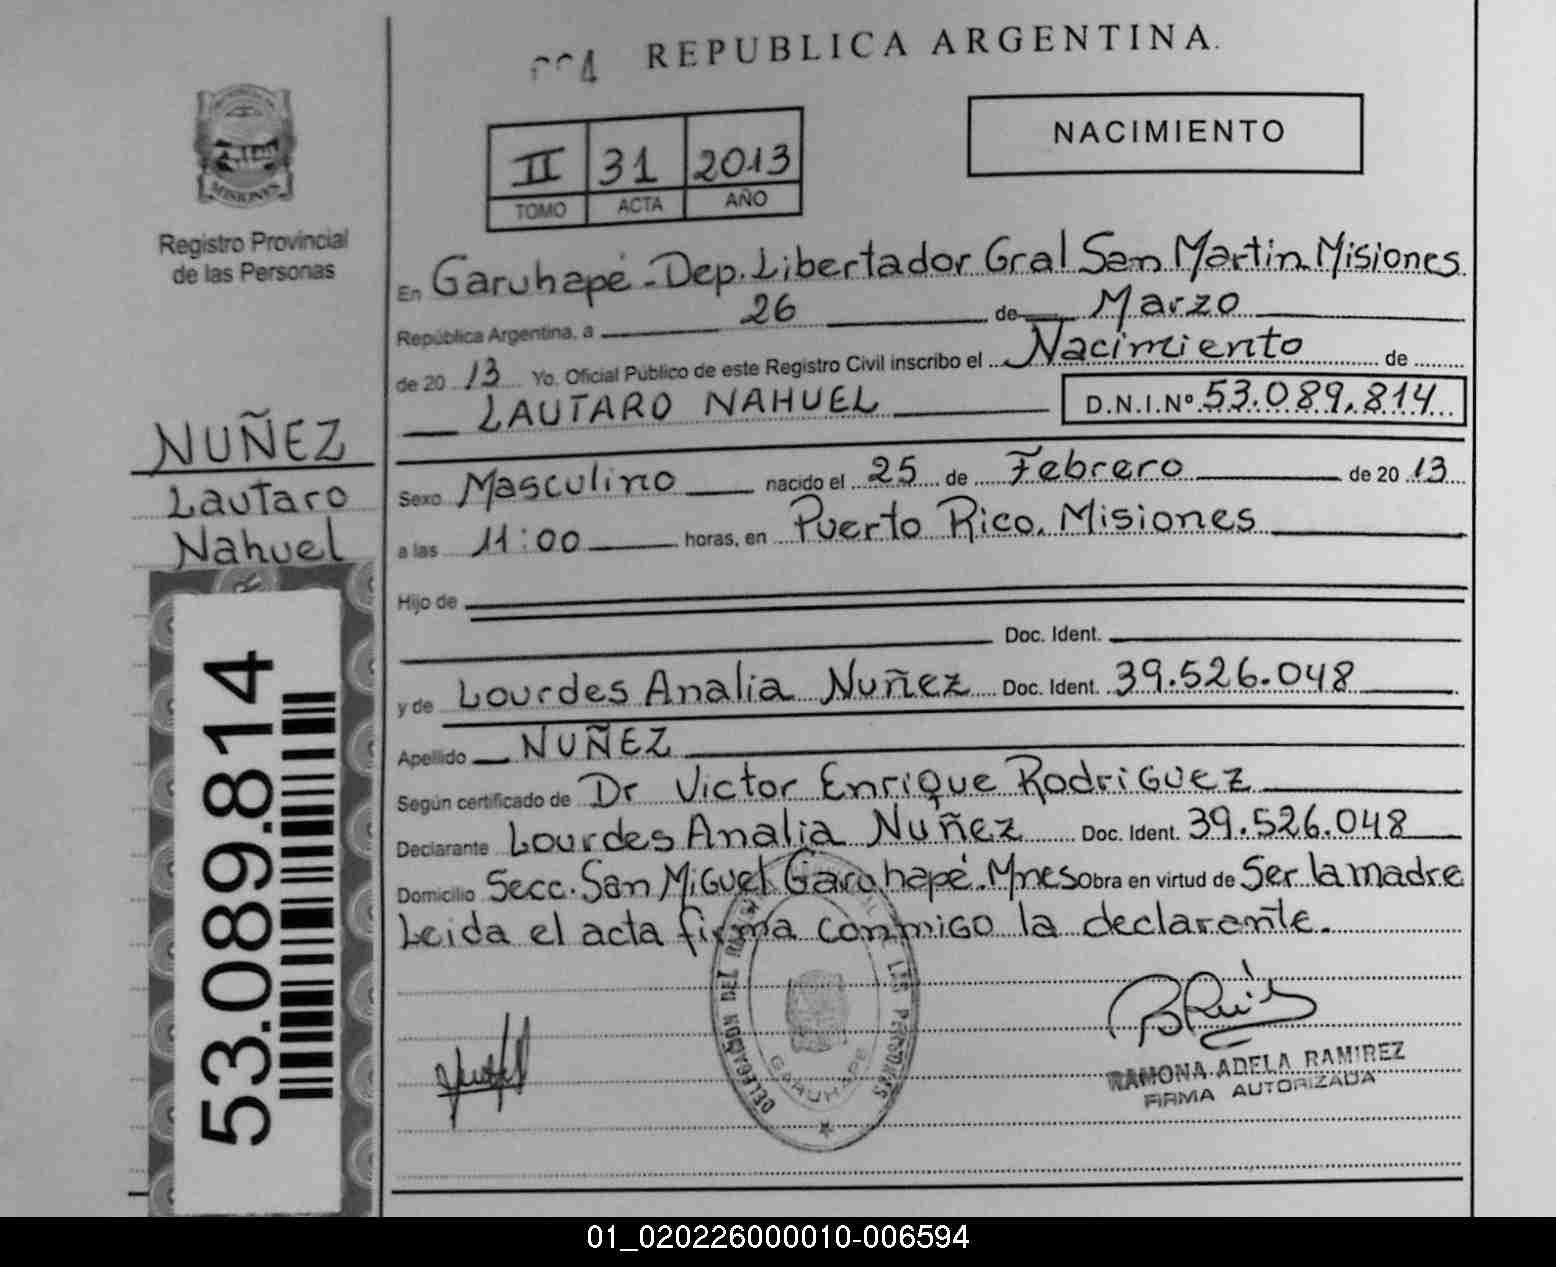 REPUBLICA ARGENTINA.
NACIMIENTO
II 31 2013
TOMO ACTA AÑO
MISIONES
Registro Provincial
de las Personas
En Garuhapé - Dep. Libertador Gral San Martin Misiones
República Argentina, a 26 de Marzo
de 20 13 Yo, Oficial Público de este Registro Civil inscribo el Nacimiento de
LAUTARO NAHUEL D.N.I.Nº 53.089.814
NUÑEZ
Lautaro
Nahuel
Sexo Masculino nacido el 25 de Febrero de 20 13
a las 11:00 horas, en Puerto Rico. Misiones
Hijo de
Doc. Ident.
y de Lourdes Analia Nuñez Doc. Ident. 39.526.048
Apellido NUÑEZ
Según certificado de Dr Victor Enrique Rodriguez
Declarante Lourdes Analia Nuñez Doc. Ident. 39.526.048
Domicilio Secc. San Miguel Garuhapé. Mnes Obra en virtud de Ser la madre
Leida el acta firma conmigo la declarante.
53.089.814
GARUHAPE
RAMONA ADELA RAMIREZ
FIRMA AUTORIZADA
01_020226000010-006594